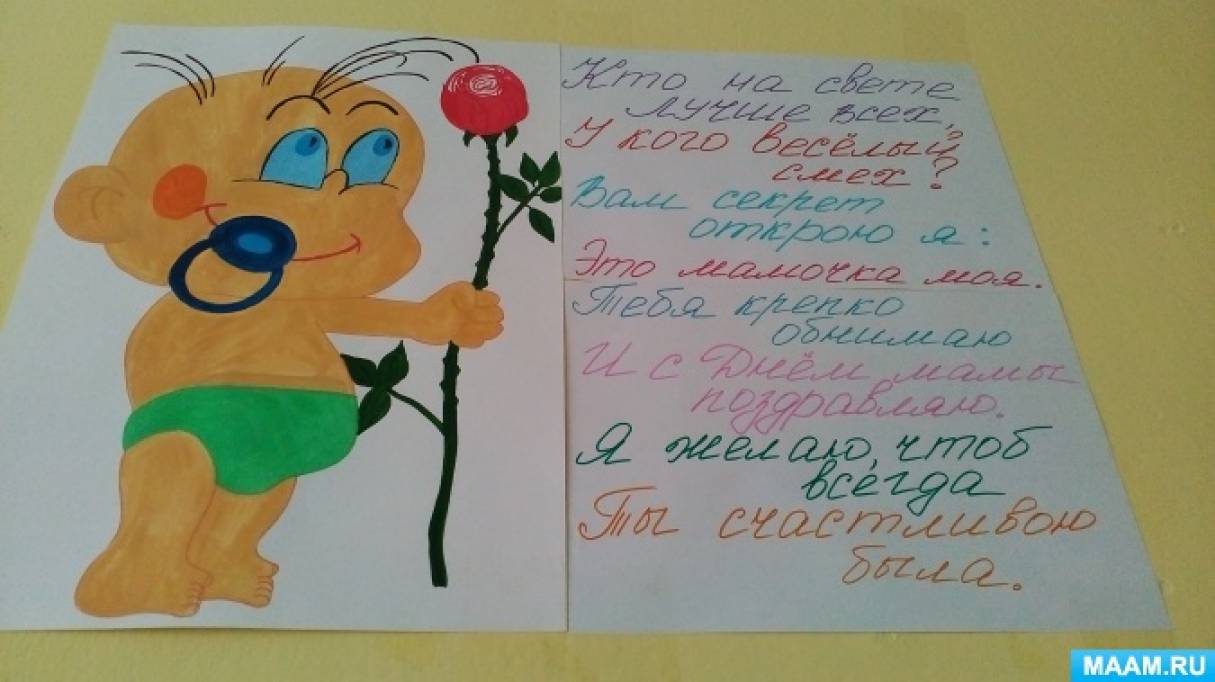 Кто на свете
лучше всех,
У кого весёлый
смех?
Вам секрет
открою я:
Это мамочка моя.
Тебя крепко
обнимаю
И с Днём мамы
поздравляю.
Я желаю, чтоб
всегда
Ты счастливою
была.
MAAM.RU